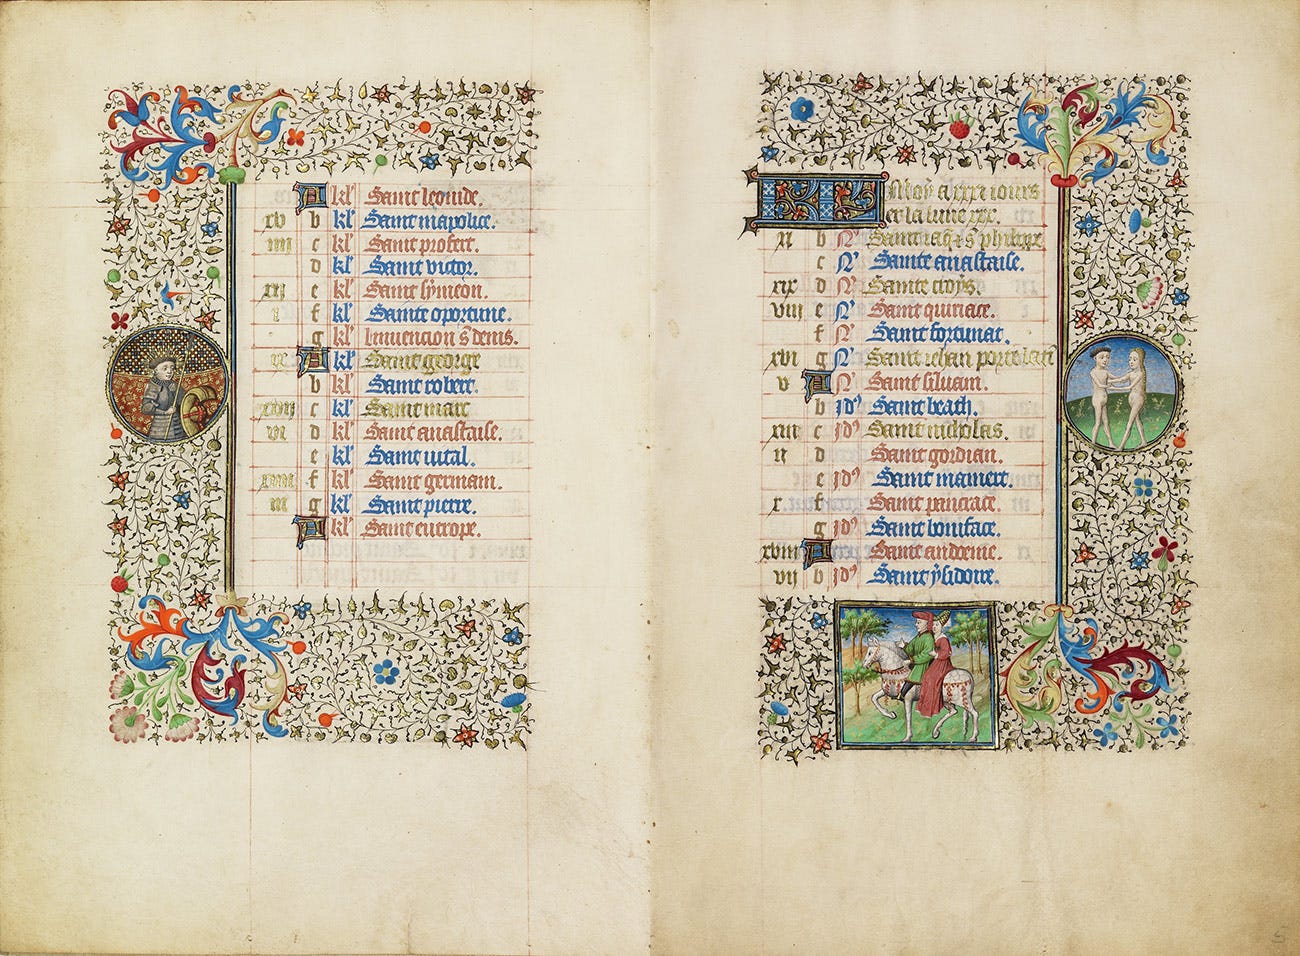 A kl' Saint leonide.
xv b kl' Saint mapolice.
iiii c kl' Saint profect.
d kl' Saint victor.
xii e kl' Saint symeon.
i f kl' Sainte oportune.
g kl' Invencion s denis.
ix A kl' Saint george
b kl' Saint robert.
xvii c kl' Saint marc
vi d kl' Saint anastaise.
e kl' Saint vital.
xiiii f kl' Saint germain.
iii g kl' Saint pierre.
A kl' Saint eutrope.
KL May a xxxi iours
et la lune xxx.
xi b N' Saint iaq' s phelippe
c N' Sainte anastaise.
xix d N' Sainte croys.
viii e N' Saint quiriace.
f N' Saint fortunat.
xvi g N' Saint iehan porte latí
v A N' Saint silvain.
b id' Saint beath.
xiii c id' Saint nicholas.
ii d Saint gordian.
e id' Saint mamert.
x f Saint pancrace.
g id' Saint boniface.
xviii A id' Sainte andreine.
vii b id' Saint ysidoire.
5